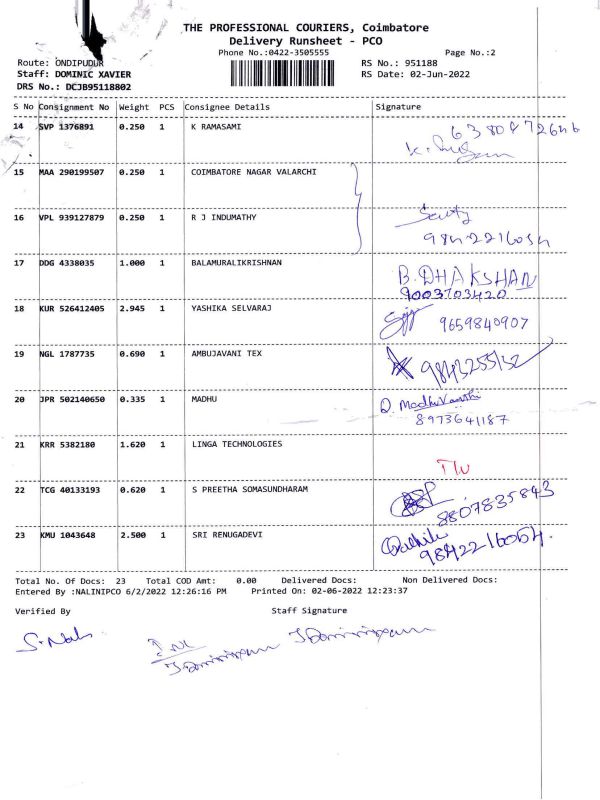 THE PROFESSIONAL COURIERS, Coimbatore
Delivery Runsheet - PCO
Phone No.:0422-3505555 Page No.:2
Route: ONDIPUDUR RS No.: 951188
Staff: DOMINIC XAVIER RS Date: 02-Jun-2022
DRS No.: DCJB95118802
S No Consignment No Weight PCS Consignee Details Signature
14 SVP 1376891 0.250 1 K RAMASAMI
15 MAA 290199507 0.250 1 COIMBATORE NAGAR VALARCHI
16 VPL 939127879 0.250 1 R J INDUMATHY
9842216054
17 DDG 4338035 1.000 1 BALAMURALIKRISHNAN
B. DHAKSHAN
9003703420
18 KUR 526412405 2.945 1 YASHIKA SELVARAJ
9659840907
19 NGL 1787735 0.690 1 AMBUJAVANI TEX
20 JPR 502140650 0.335 1 MADHU
D. Madhuvanthi
8973641187
21 KRR 5382180 1.620 1 LINGA TECHNOLOGIES
22 TCG 40133193 0.620 1 S PREETHA SOMASUNDHARAM
8807835843
23 KMU 1043648 2.500 1 SRI RENUGADEVI
9842216054.
Total No. Of Docs: 23 Total COD Amt: 0.00 Delivered Docs: Non Delivered Docs:
Entered By :NALINIPCO 6/2/2022 12:26:16 PM Printed On: 02-06-2022 12:23:37
Verified By Staff Signature